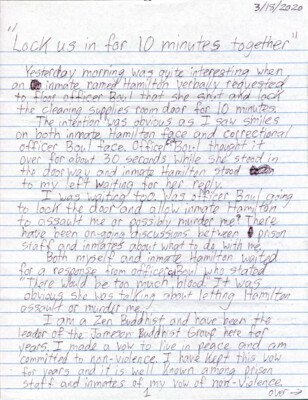 3/18/2020
"Lock us in for 10 minutes together"
Yesterday morning was quite interesting when
an inmate named Hamilton verbally requested
to floor officer Boul that she shut and lock
the cleaning supplies room door for 10 minutes.
The intention was obvious as I saw smiles
on both inmate Hamilton face and correctional
officer Boul face. Officer Boul thought it
over for about 30 seconds while she stood in
the doorway and inmate Hamilton stood
to my left waiting for her reply.
I was waiting too. Was officer Boul going
to lock the door and allow inmate Hamilton
to assault me or possibly murder me? There
have been on-going discussions between prison
staff and inmates about what to do with me.
Both myself and inmate Hamilton waited
for a response from officer Boul who stated
"There would be too much blood. It was
obvious she was talking about letting Hamilton
assault or murder me.
I am a Zen Buddhist and have been the
leader of the Buddhist Group here for
years. I made a vow to live in peace and am
committed to non-violence. I have kept this vow
for years and it is well known among prison
staff and inmates of my vow of non-violence.
1
over →